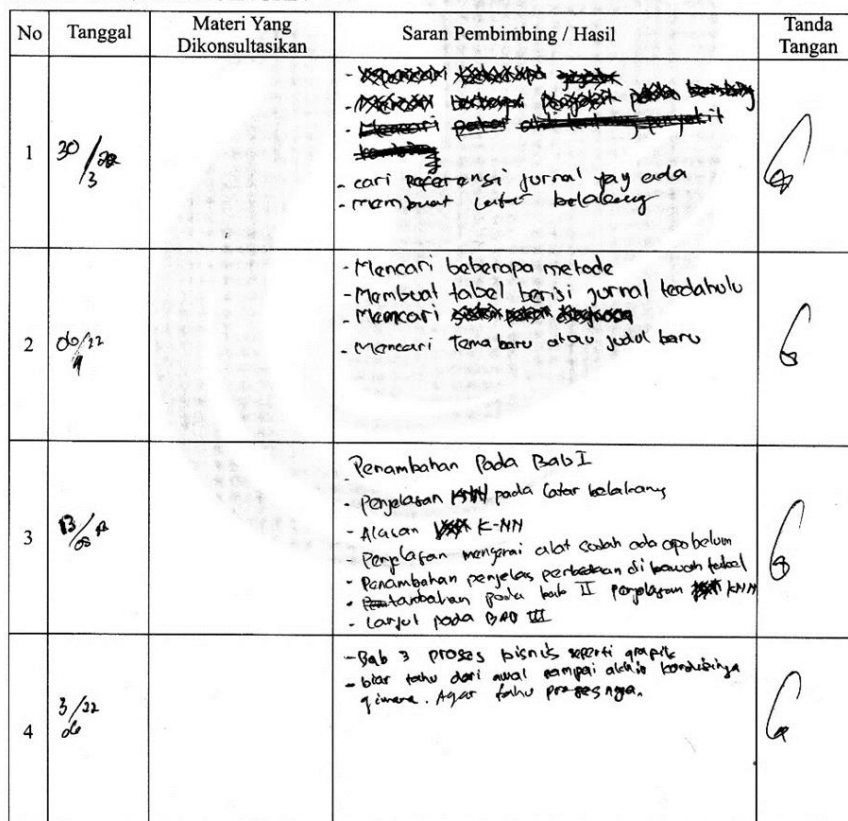 No Tanggal Materi Yang Dikonsultasikan Saran Pembimbing / Hasil Tanda Tangan
1 30/3
- cari Referensi jurnal yay ada
- membuat latar belakang
2 06/22
- Mencari beberapa metode
- Membuat tabel berisi jurnal terdahulu
- Mencari
- Mencari Tema baru atau judul baru
3 13/05
Penambahan Pada Bab I
- Penjelasan pada latar belakang
- Alasan K-NN
- Penjelasan mengenai alat sudah ada apa belum
- Penambahan penjelas perbedaan di bawah tabel
- tambahan pada bab II penjelasan KNN
- Lanjut pada BAB III
4 3/22 06
- Bab 3 proses bisnis seperti grapik
- biar tahu dari awal sampai akhir kondisinya
gimana. Agar tahu prosesnya.